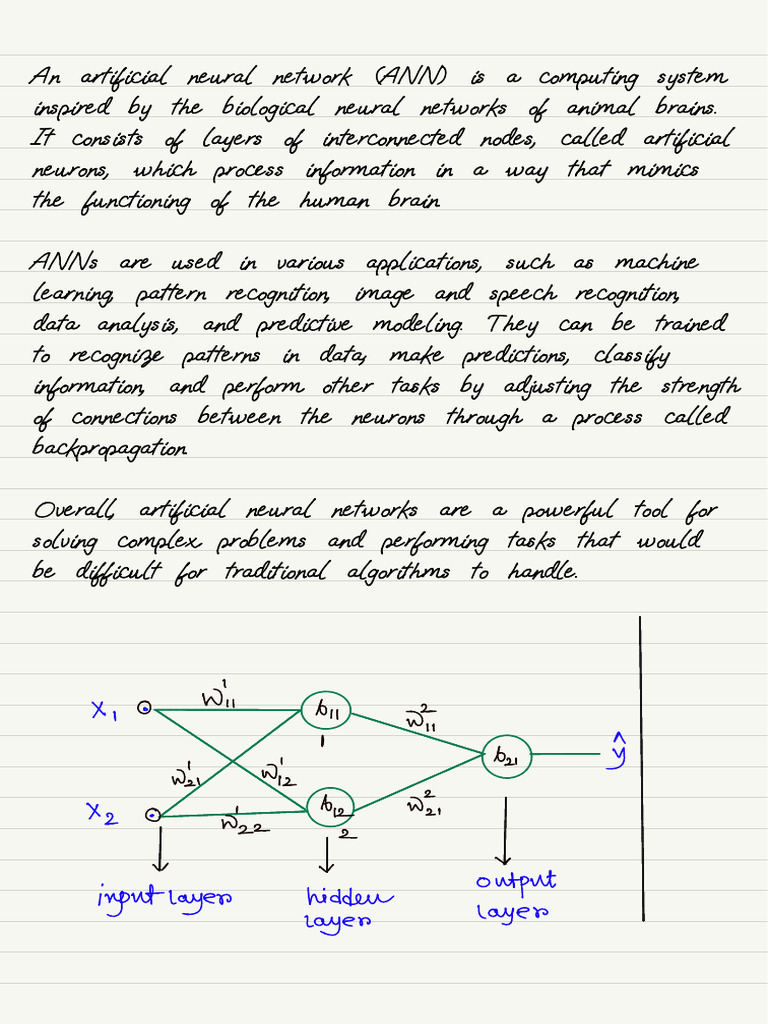 An artificial neural network (ANN) is a computing system
inspired by the biological neural networks of animal brains.
It consists of layers of interconnected nodes, called artificial
neurons, which process information in a way that mimics
the functioning of the human brain
ANNs are used in various applications, such as machine
learning, pattern recognition, image and speech recognition,
data analysis, and predictive modeling. They can be trained
to recognize patterns in data, make predictions, classify
information, and perform other tasks by adjusting the strength
of connections between the neurons through a process called
backpropagation.
Overall, artificial neural networks are a powerful tool for
solving complex problems and performing tasks that would
be difficult for traditional algorithms to handle.
x₁ W¹₁₁ b₁₁ W²₁₁
1
b₂₁ ŷ
W¹₂₁ W¹₁₂
x₂ W¹₂₂ b₁₂ W²₂₁
2
input layers hidden output
layers layers